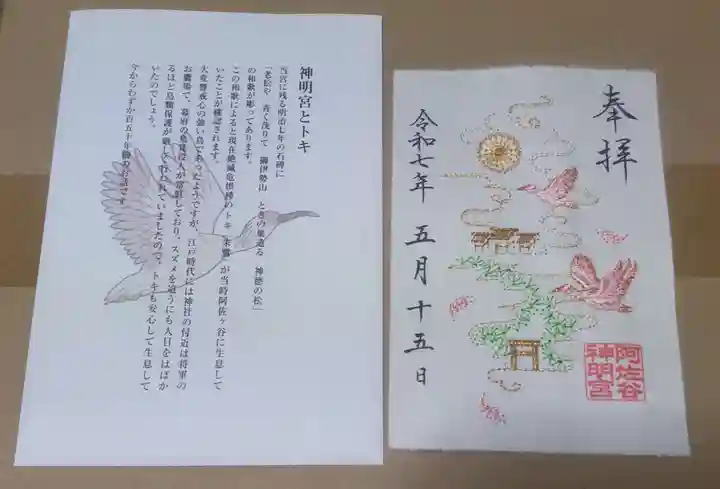 神明宮とトキ
当宮に残る明治七年の石碑に
「老松や 青く茂りて 御伊勢山 ときの巣造る 神徳の松」
の和歌が彫ってあります。
この和歌によると現在絶滅危惧種のトキ(朱鷺)が当時阿佐ヶ谷に生息して
いたことが確認されます。
大変警戒心の強い鳥であったようですが、江戸時代には神社の付近は将軍の
お鷹場で、幕府の鳥見役人が常駐しており、スズメを追うにも人目をはばか
るほど鳥類保護が厳しく行われていましたので、トキも安心して生息して
いたのでしょう。
今からわずか百五十年前のお話です。
奉拝
令和七年 五月十五日
阿佐谷
神明宮